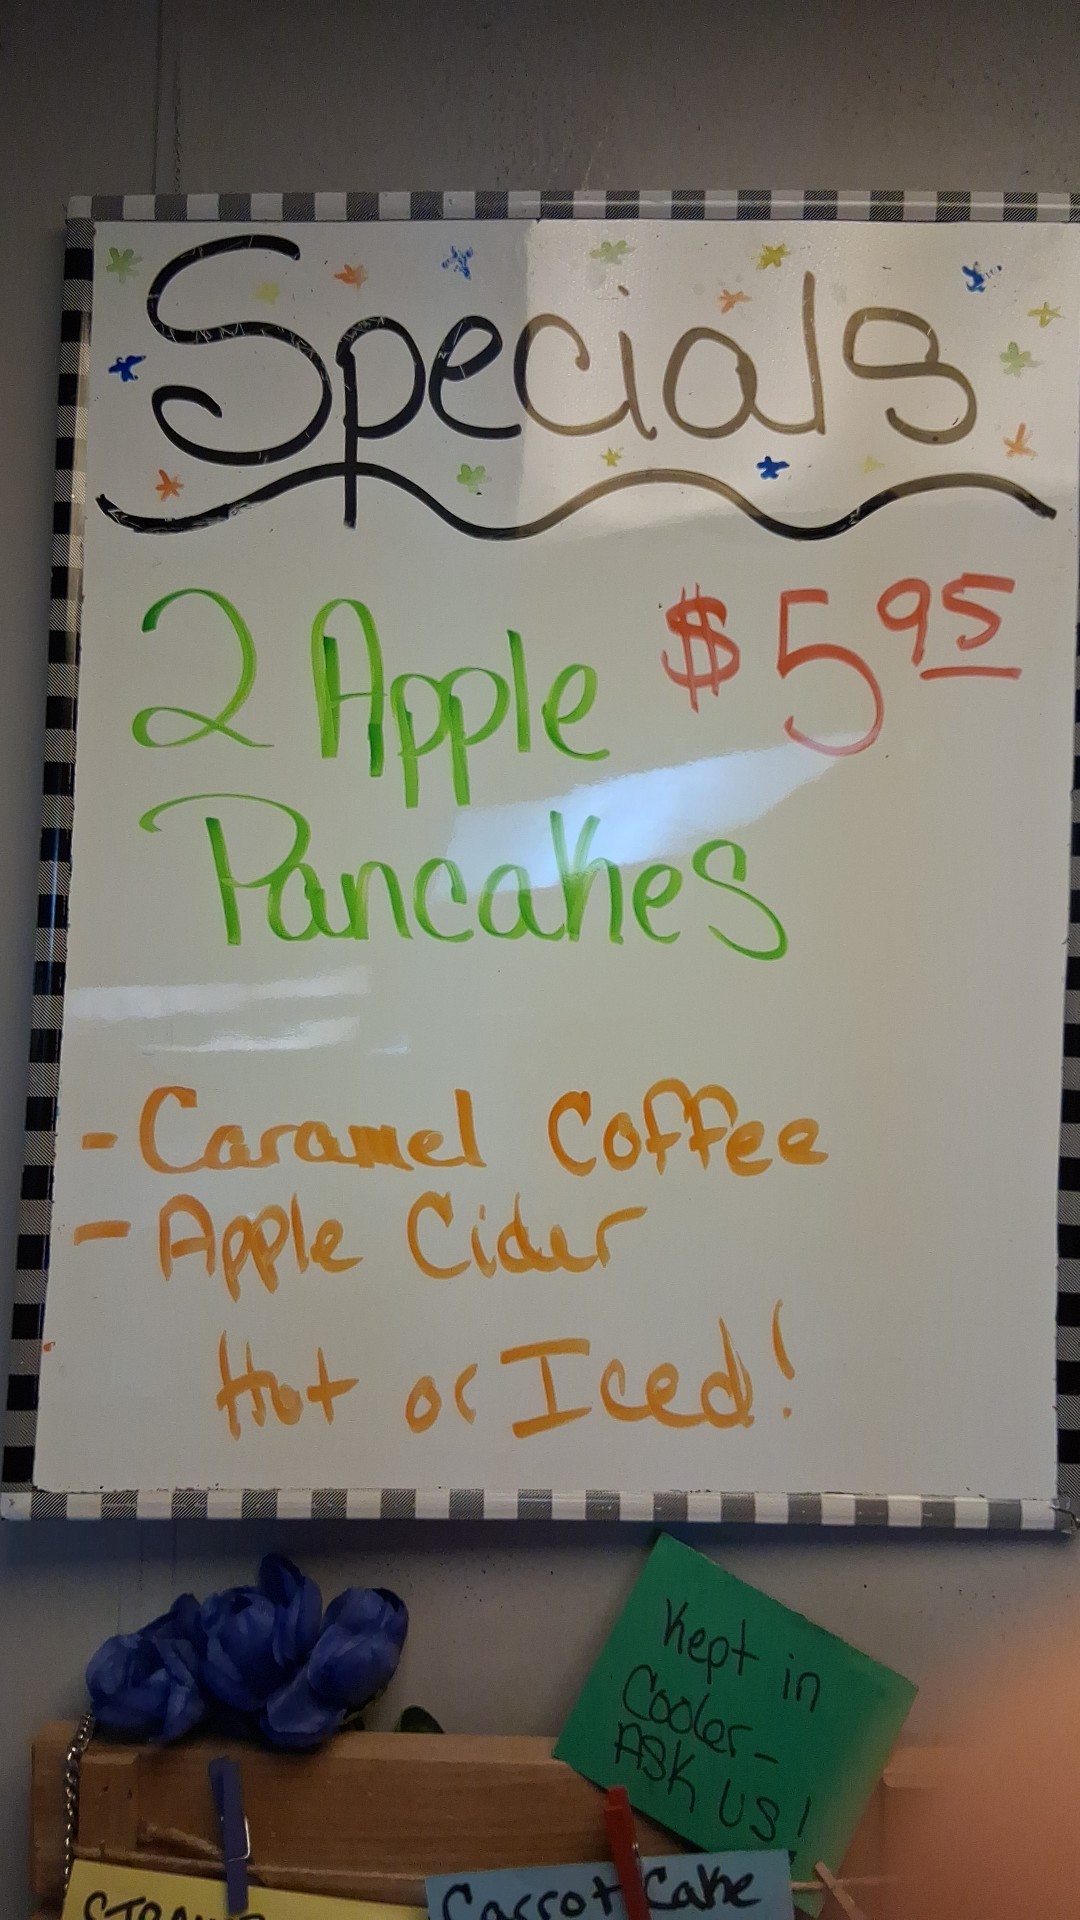 Specials
2 Apple $5.95
Pancakes
- Caramel Coffee
- Apple Cider
Hot or Iced!
Kept in
Cooler-
ASK US!
Carrot Cake